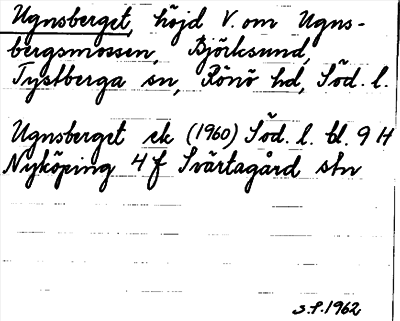 Ugnsberget, höjd V. om Ugns-
bergsmossen, Björksund,
Tystberga sn, Rönö hd, Söd. l.
Ugnsberget ek (1960) Söd. l. bl. 9 H
Nyköping 4 f Svärtagård stn
S.P. 1962